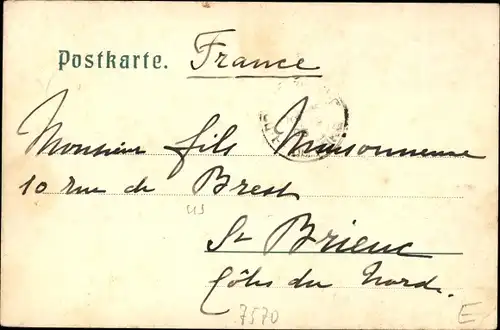 Postkarte. France
Monsieur fils Maisonneuve
10 rue de Brest
St Brieuc
Côtes du Nord.
7570 E